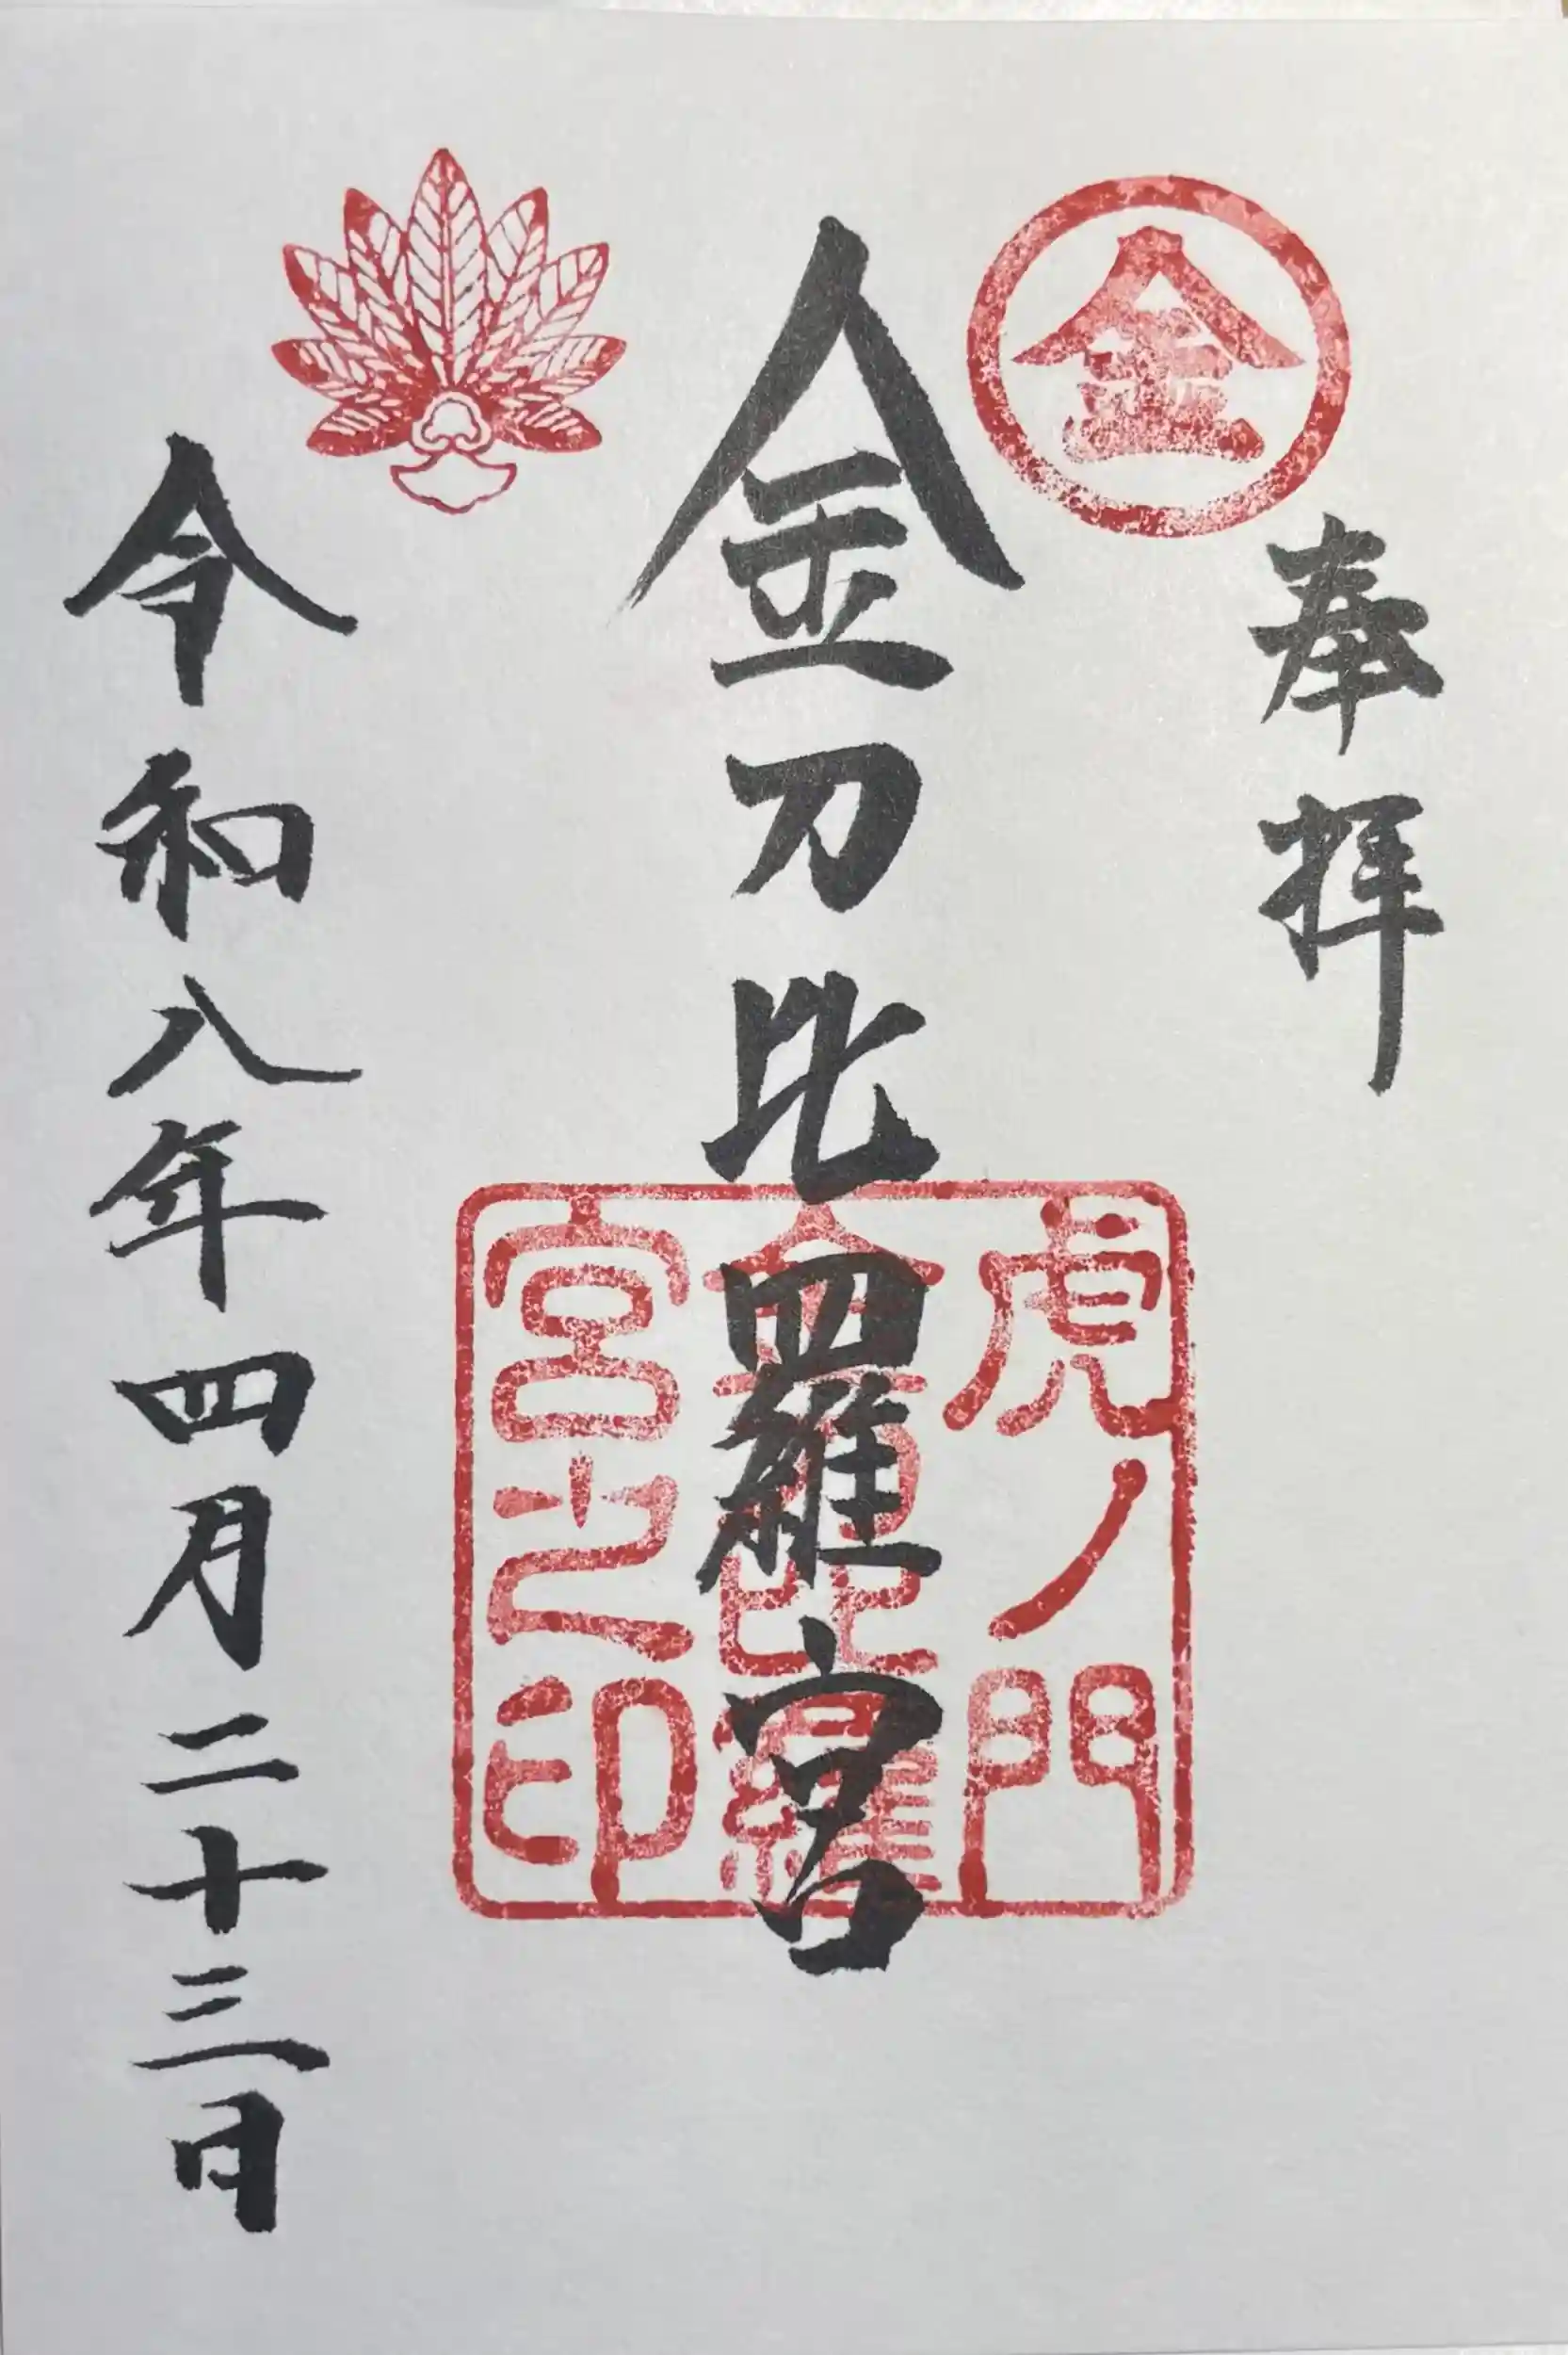 奉拝
金
金刀比羅宮
虎ノ門
金刀比羅
宮之印
令和八年四月二十三日